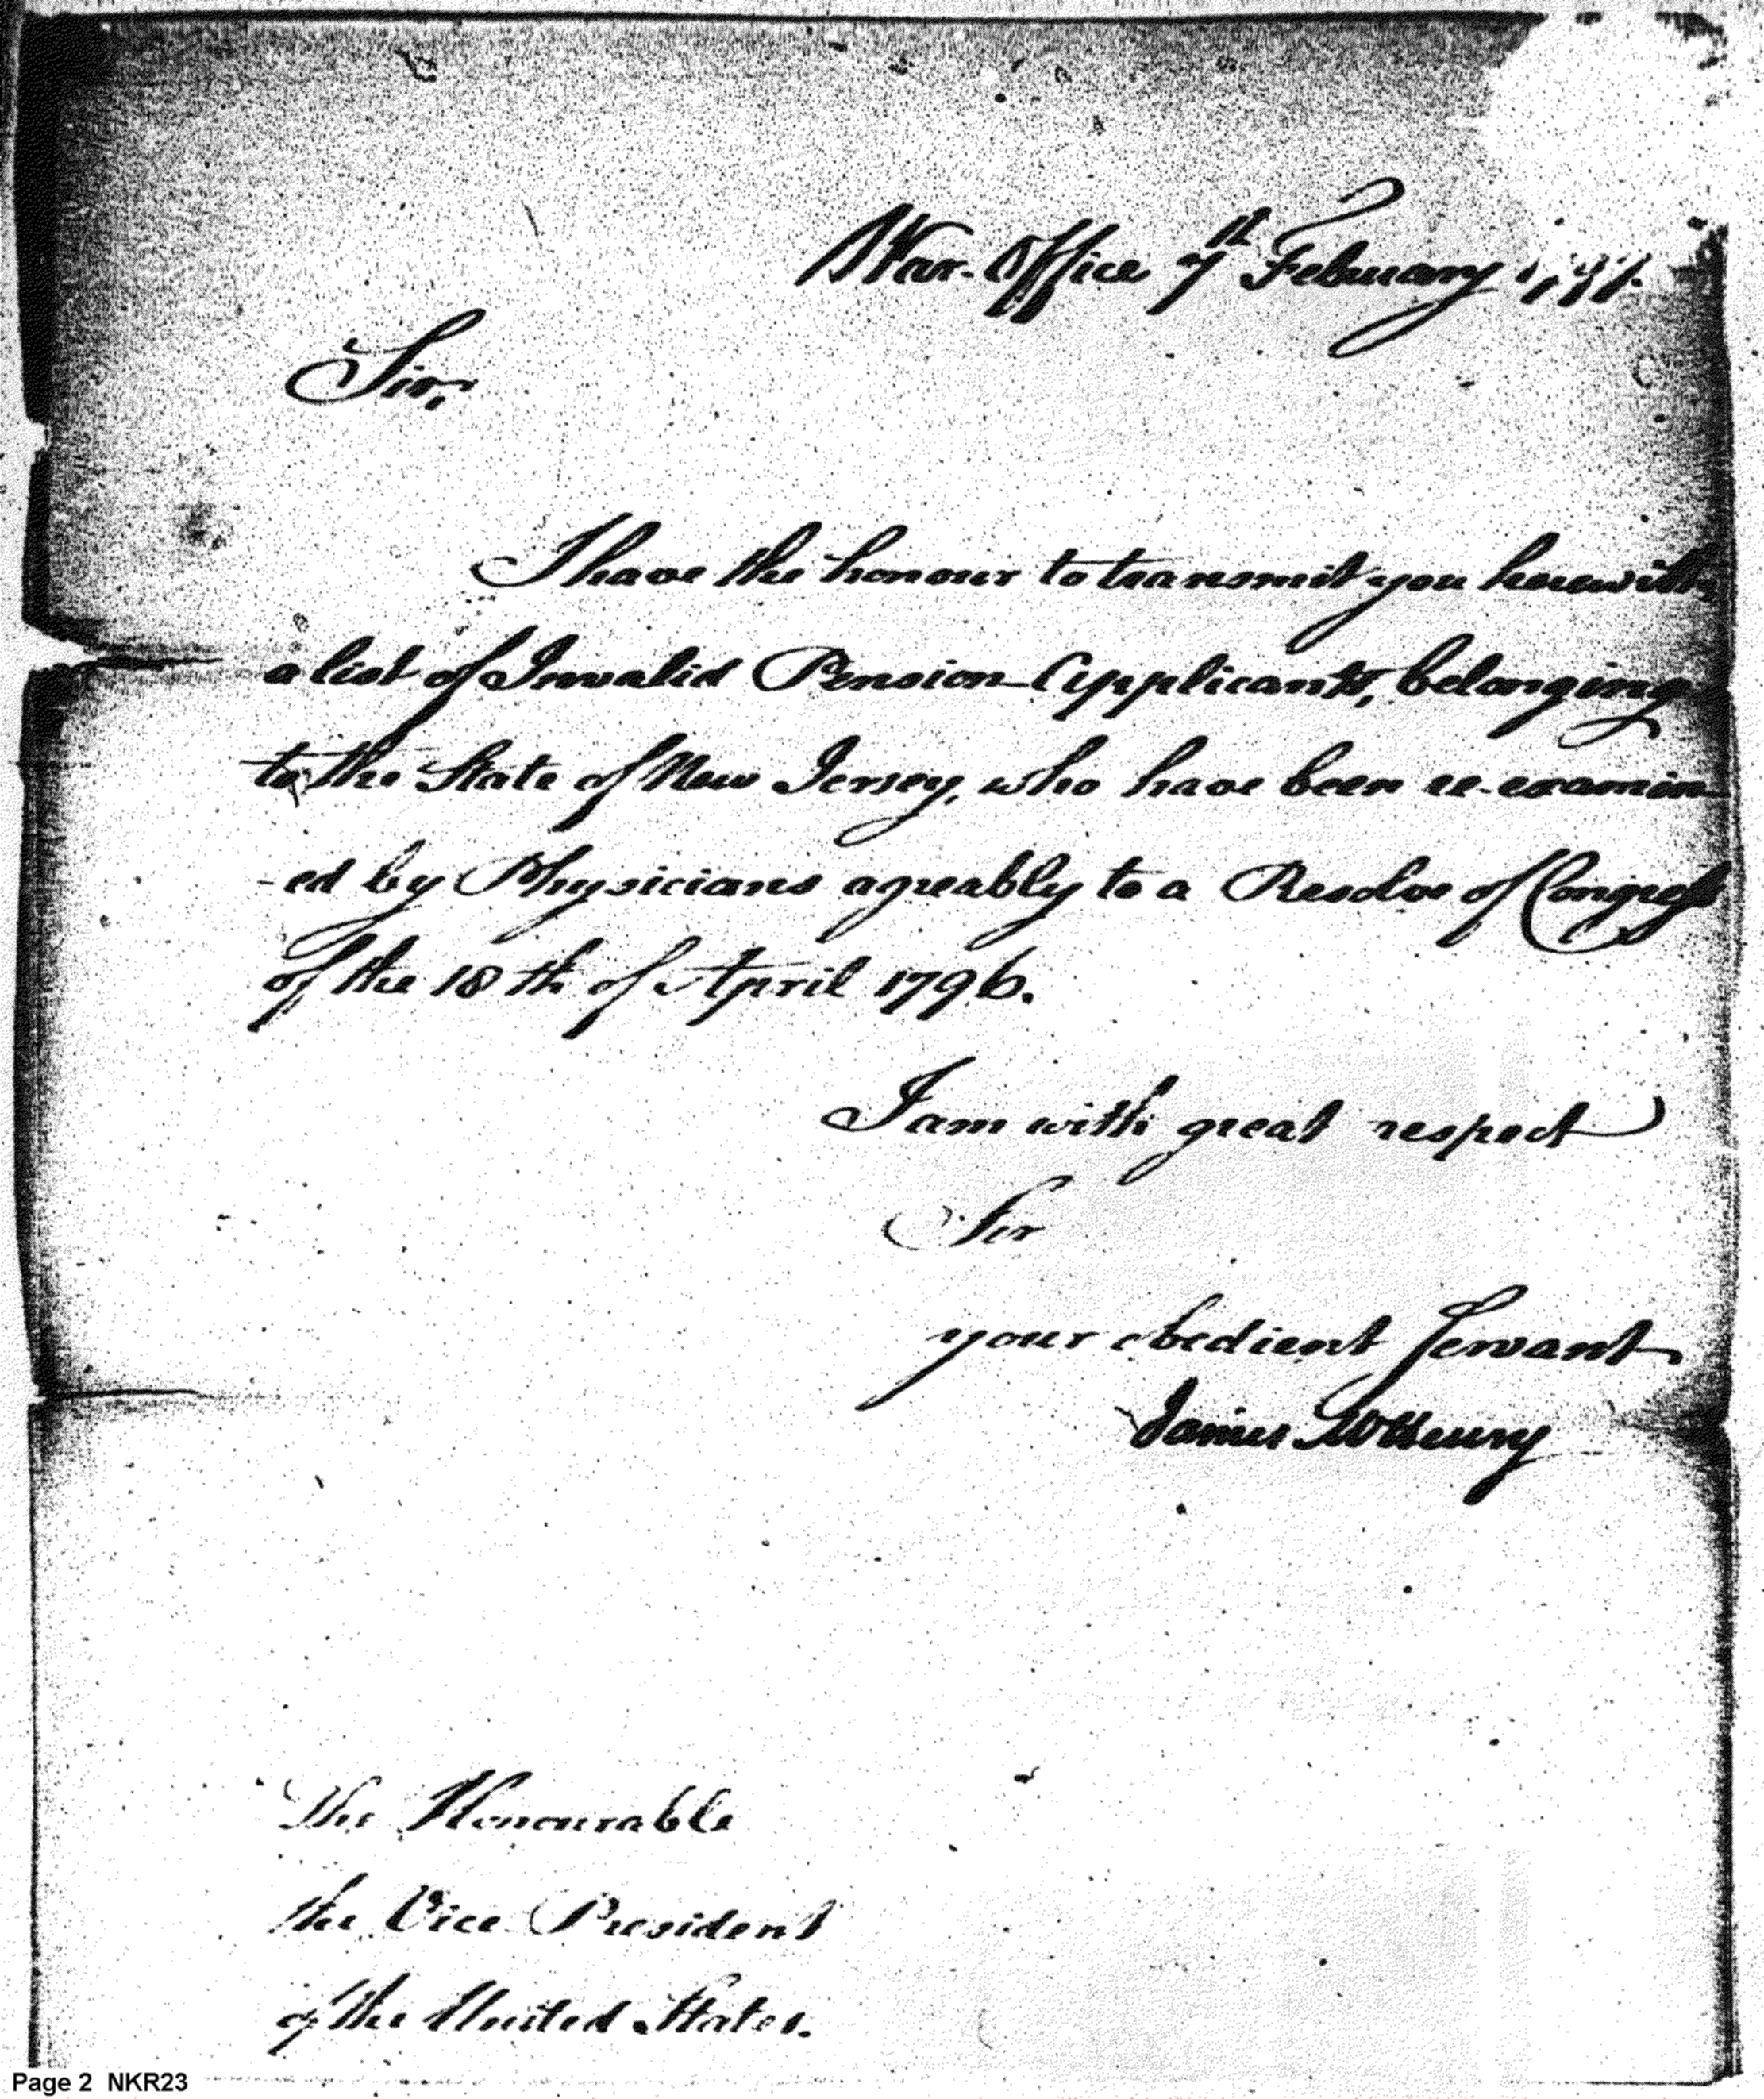 War Office 7th February
Sir,
I have the honour to transmit you herewith
a list of Invalid Pension Applicants, belonging
to the State of New Jersey, who have been re-examin
-ed by Physicians agreably to a Resolve of Congress
of the 18th of April 1796.
I am with great respect
Sir
your obedient Servant
James McHenry
The Honourable
the Vice President
of the United States.
Page 2 NKR23